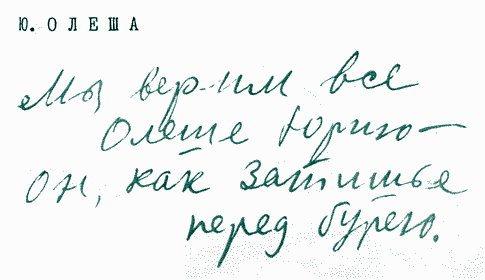 Ю. ОЛЕША
Мы верим все
Олеше Юрию —
Он, как затишье
перед бурею.